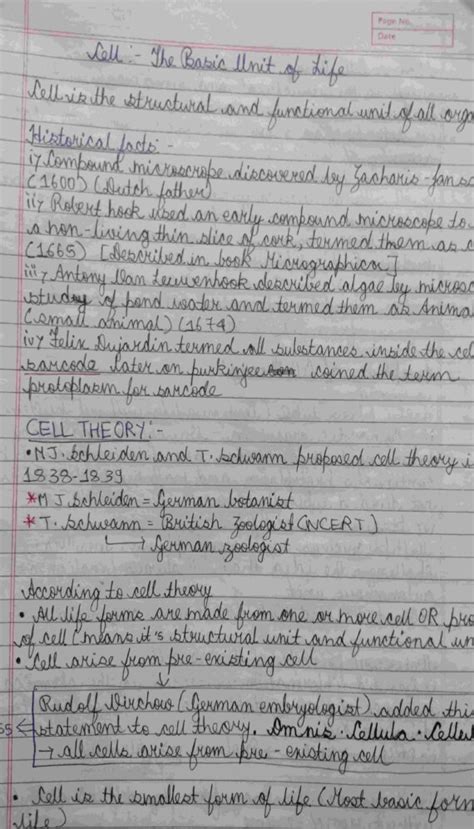 Page No.
Date
Cell :- The Basic Unit of Life
Cell is the structural and functional unit of all orga
Historical facts :-
i> Compound microscrope discovered by Zacharis-Jansc
(1600) (Dutch father)
ii> Robert hook used an early compound microscope to
a non-living thin slice of cork, termed them as c
(1665) [Described in book Micrographica]
iii> Antony Van Leeuwenhook described algae by microsc
study of pond water and termed them as Anima
(small animal) (1674)
iv> Felix Dujardin termed all substances inside the cel
sarcode later on purkinjee coined the term
protoplasm for sarcode
CELL THEORY :-
• MJ. Schleiden and T. Schwann proposed cell theory i
1838-1839
*M J. Schleiden = German botanist
* T. Schwann = British Zoologist (NCERT)
→ German zoologist
According to cell theory
• All life forms are made from one or more cell OR pro
of cell (means it's structural unit and functional un
• Cell arise from pre-existing cell
↓
Rudolf Virchow (German embryologist) added this
55 ← statement to cell theory. Omnis · Cellula · Cellul
→ all cells arise from pre-existing cell
• Cell is the smallest form of life (Most basic form
life)